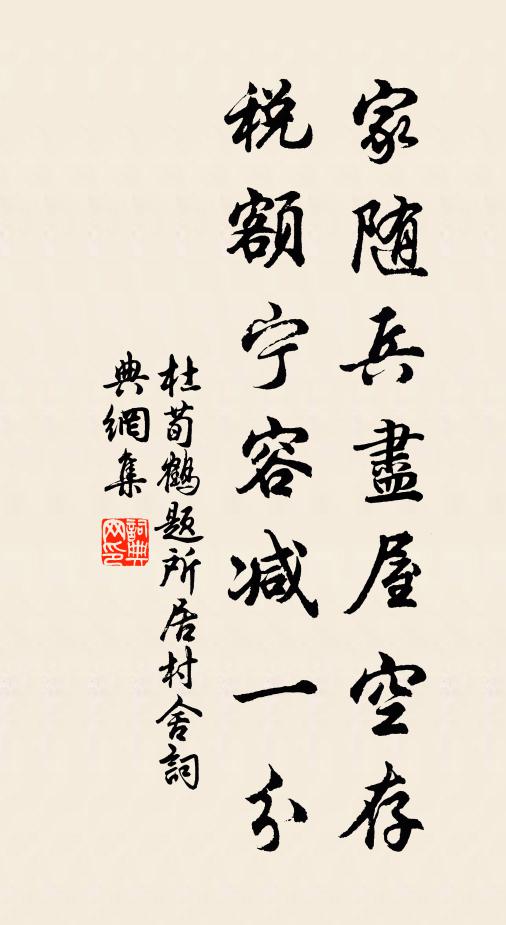 家随兵盡屋空存
税額宁容减一分
杜荀鶴题所居村舍詞
典網集
詞典
网印